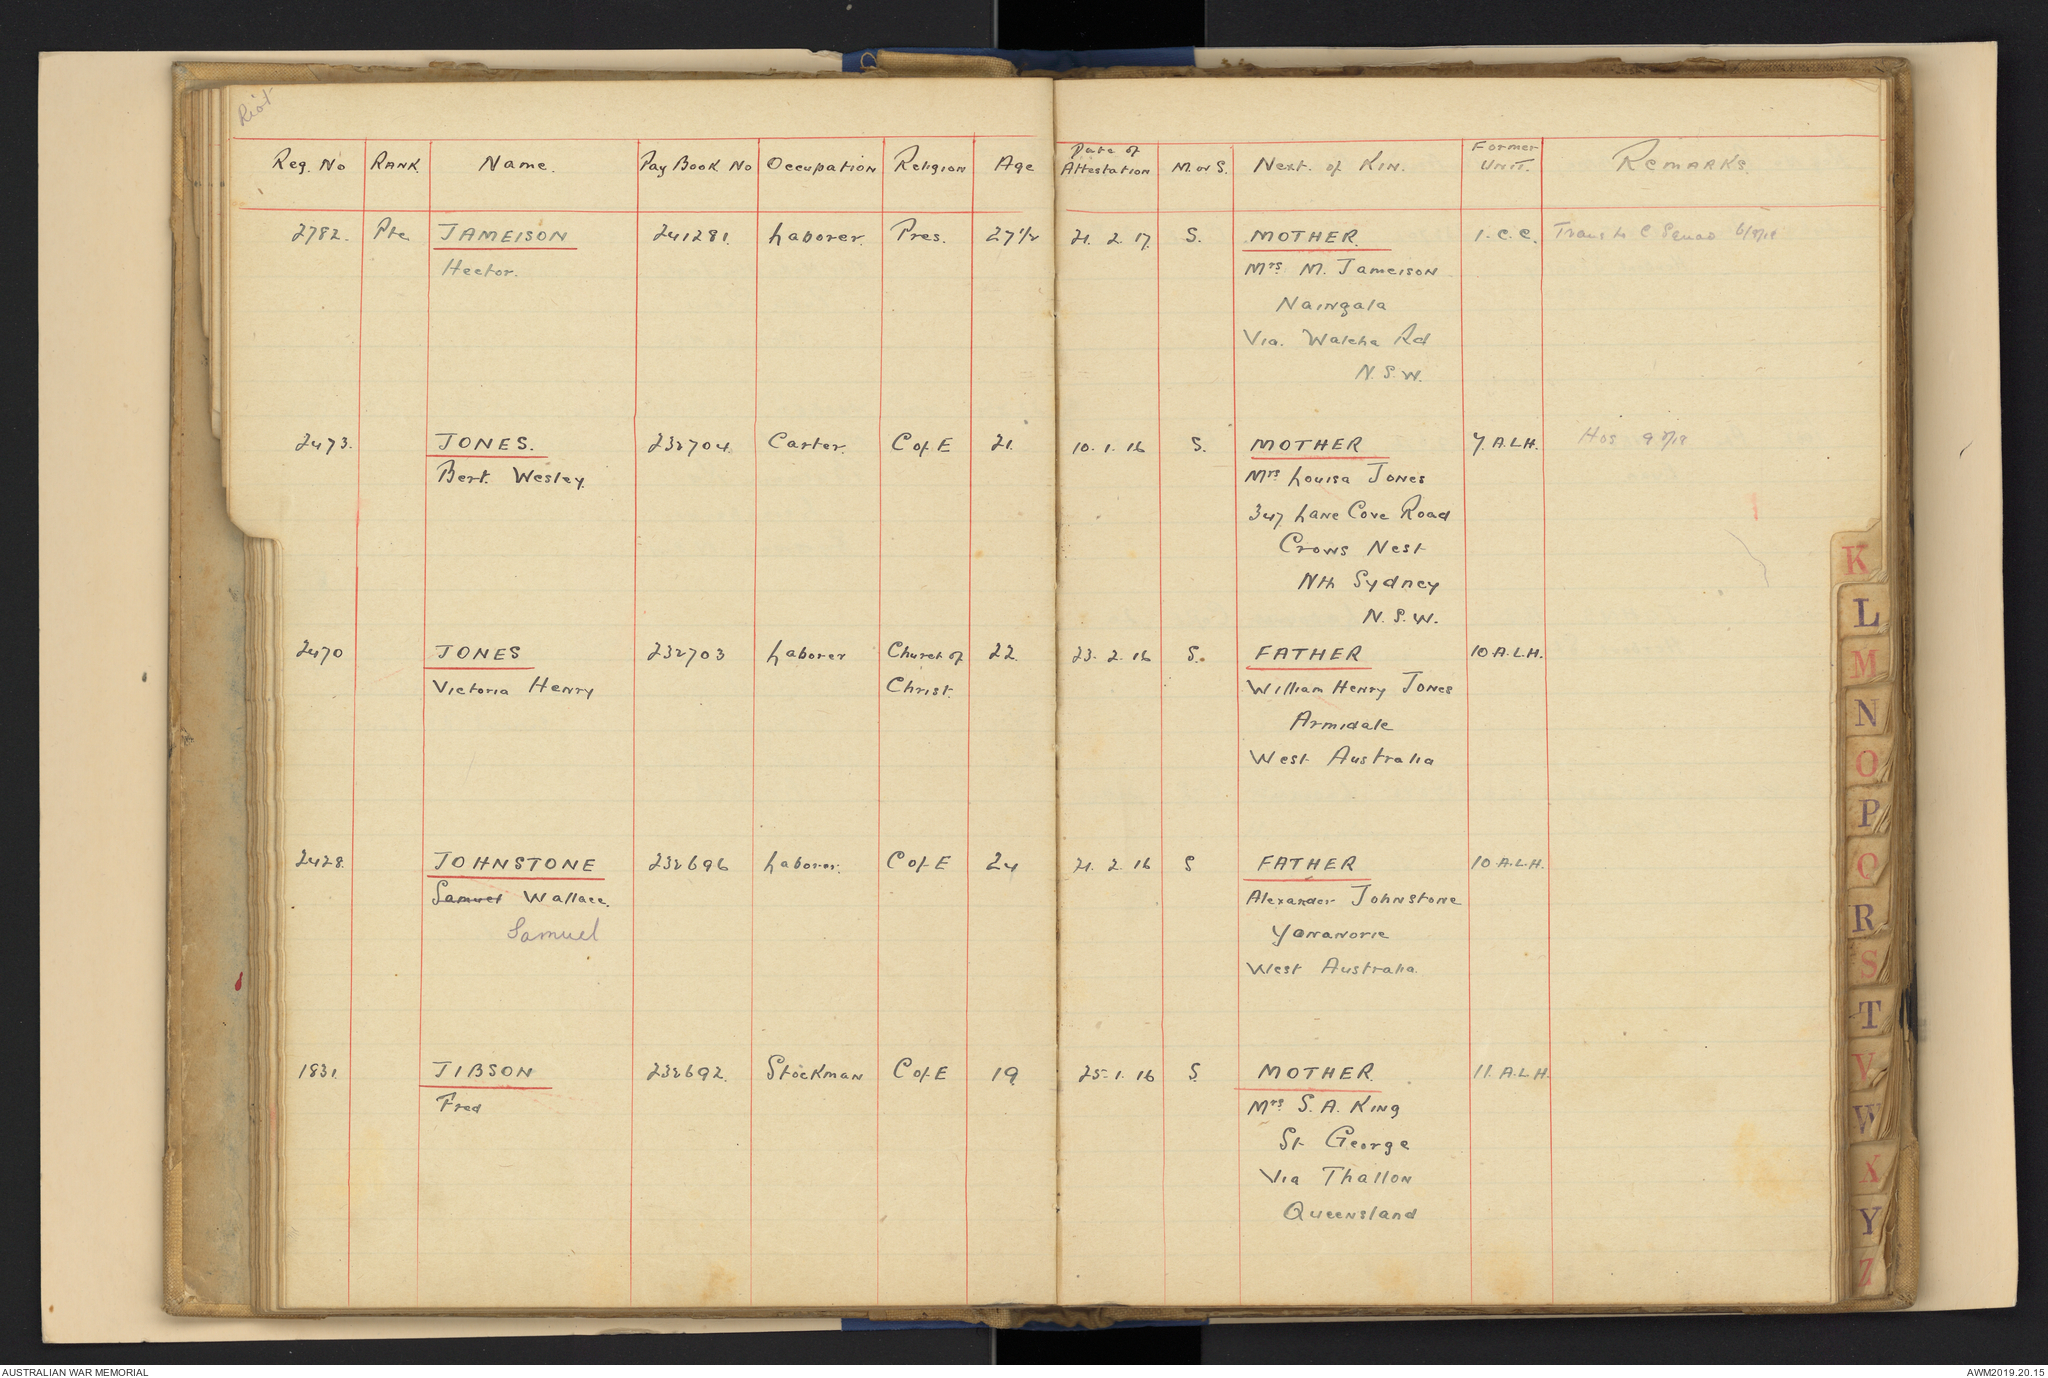 Riot
Reg. No RANK. Name. Pay Book No Occupation Religion Age Date of Attestation M. or S. Next. of KIN. Former UNIT. REMARKS.
2782. Pte JAMEISON 241281. Laborer. Pres. 27½ 21. 2. 17. S. MOTHER. 1. C. C. Trans to C Squad
Hector. Mrs M. JAMEISON
Naingala
Via. Walcha Rd
N. S. W.
2473. JONES. 232704. Carter. C of E 21. 10. 1. 16 S. MOTHER 7. A.L.H. Hos
Bert. Wesley. Mrs Louisa JONES
347 Lane Cove Road
Crows Nest
Nth Sydney
N. S. W.
2470 JONES 232703 Laborer Church of 22. 23. 2. 16 S. FATHER 10 A.L.H.
Victoria Henry Christ. William Henry JONES
Armidale
West Australia
2428. JOHNSTONE 232696 Laborer. C of E 24 21. 2. 16 S FATHER 10 A.L.H.
Samuel Wallace. Alexander Johnstone
Samuel Yananorie
West Australia.
1831. JIBSON 232692. Stockman C of E 19 25. 1. 16 S. MOTHER. 11. A.L.H.
Fred Mrs S. A. King
St George
Via Thallon
Queensland
K
L
M
N
O
P
Q
R
S
T
V
W
X
Y
Z
AUSTRALIAN WAR MEMORIAL AWM2019.20.15